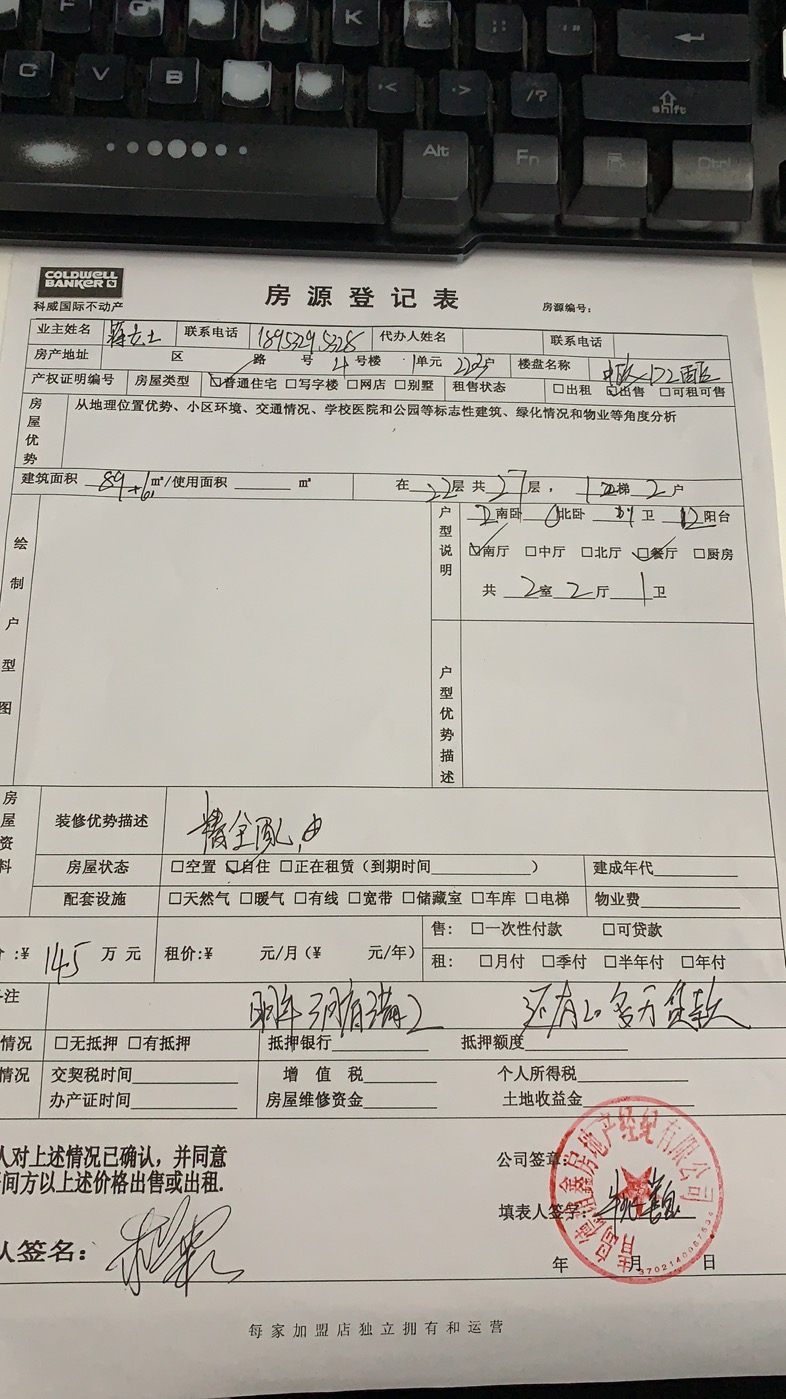 F G K
C V B < > /?
shift
Alt Fn Ctrl
COLDWELL
BANKER
科威国际不动产
房源登记表
房源编号：
业主姓名 联系电话 代办人姓名 联系电话
房产地址 区 路 号 4号楼 1单元 2203户 楼盘名称
产权证明编号 房屋类型 普通住宅 □写字楼 □网店 □别墅 租售状态 □出租 出售 □可租可售
房屋优势
从地理位置优势、小区环境、交通情况、学校医院和公园等标志性建筑、绿化情况和物业等角度分析
建筑面积 89+6 m²/使用面积 m² 在22层 共27层， 1梯 2户
绘制户型图
户型说明
2南卧 北卧 1卫 阳台
南厅 □中厅 □北厅 餐厅 □厨房
共 2室 2厅 1卫
户型优势描述
房屋资料
装修优势描述
房屋状态 □空置 自住 □正在租赁（到期时间 ） 建成年代
配套设施 □天然气 □暖气 □有线 □宽带 □储藏室 □车库 □电梯 物业费
:¥ 145 万元 租价:¥ 元/月（¥ 元/年） 售: □一次性付款 □可贷款
租: □月付 □季付 □半年付 □年付
注 明年 满2 还有20多万贷款
情况 □无抵押 □有抵押 抵押银行 抵押额度
情况 交契税时间 增值税 个人所得税
办产证时间 房屋维修资金 土地收益金
人对上述情况已确认，并同意
间方以上述价格出售或出租.
公司签章:
填表人签字:
人签名：
年 月 日
鑫房地产经纪有限公司
每家加盟店独立拥有和运营